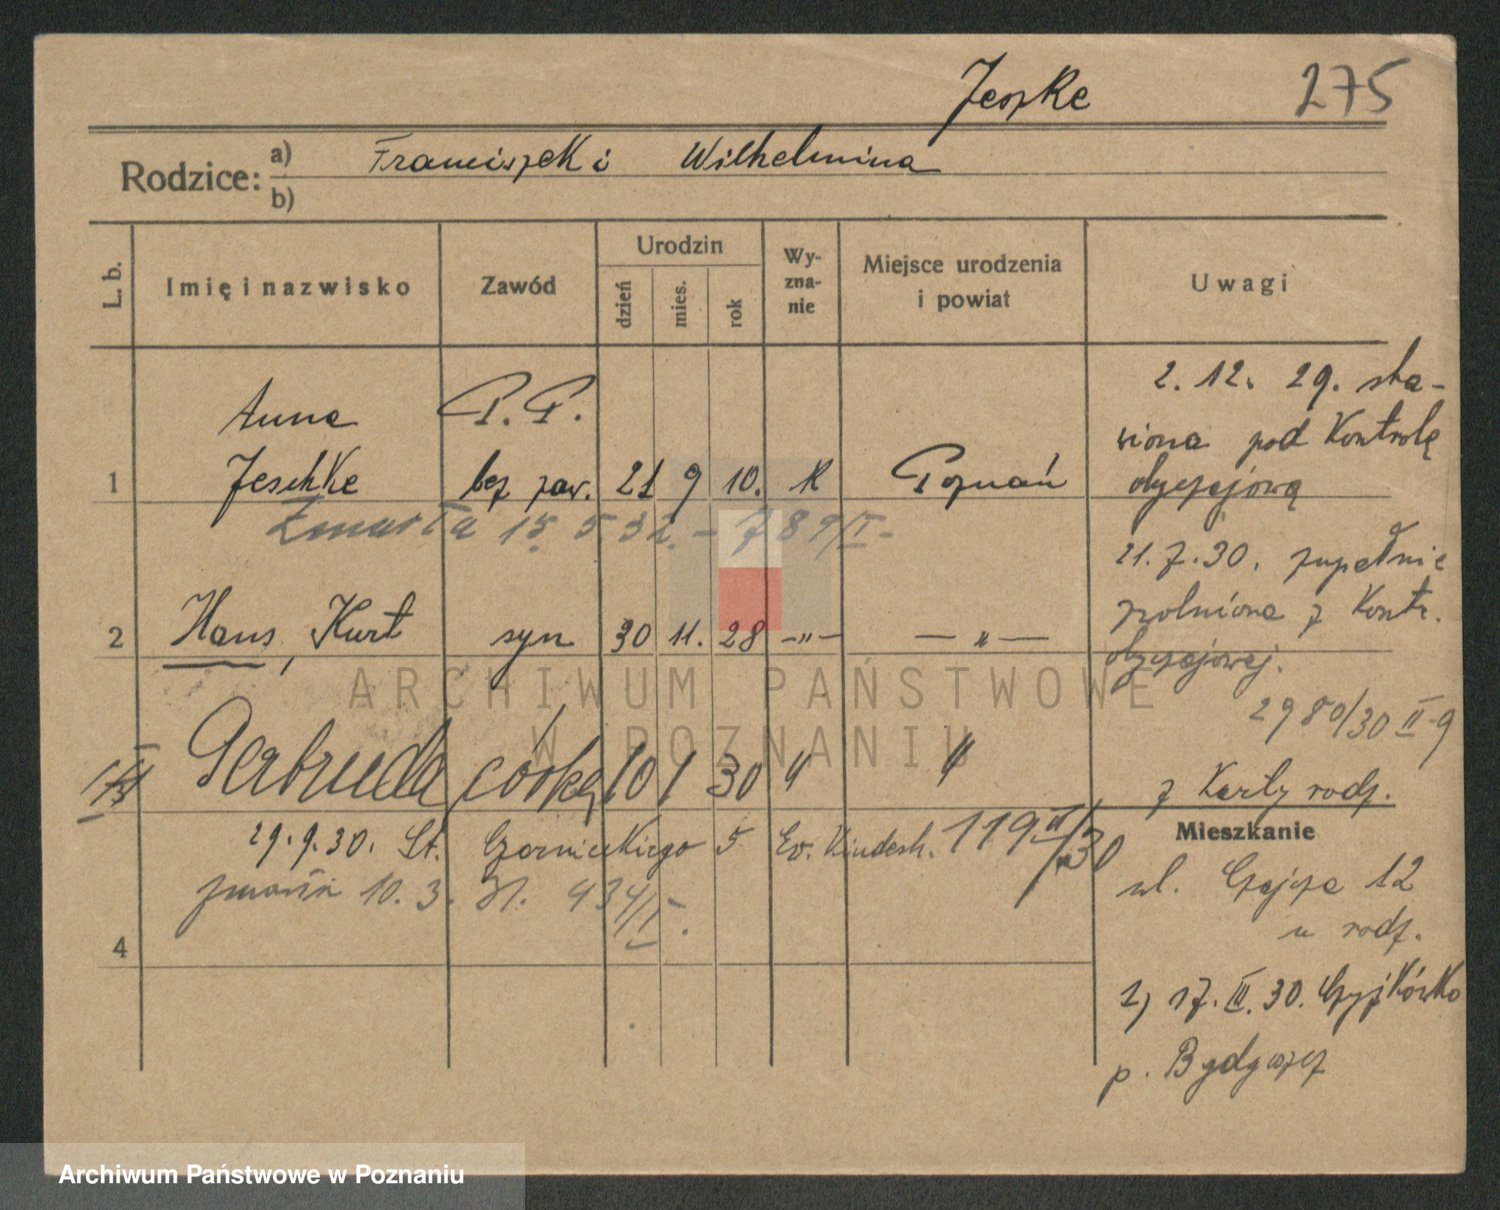 Jeszke 275
Rodzice: a) Franciszek i Wilhelmina
b)
L. b. Imię i nazwisko Zawód Urodzin dzień mies. rok Wyzna-nie Miejsce urodzenia i powiat Uwagi
Anna P. P.
1 Jeschke bez zaw. 21 9 10. K Poznań
Zmarła 15. 5 32. - 789/II -
2 Hans, Kurt syn 30 11. 28 -"- -"-
Gertruda córka 10 1 30 " "
29. 9. 30. St. Czarnieckiego 5 Ev. Kindesh. 119 /30
zmarła 10. 3. 31. 934/II.
4
2. 12. 29. sta-
wiona pod Kontrolę
obyczajową
21. 7. 30. zupełnie
zwolniona z Kontr.
obyczajowej.
2980/30 II-9
z Karty rodz.
Mieszkanie
ul. Czajcza 12
u rodz.
1) 17. III. 30. Czyżkówko
p. Bydgoszcz
ARCHIWUM PAŃSTWOWE
W POZNANIU
Archiwum Państwowe w Poznaniu